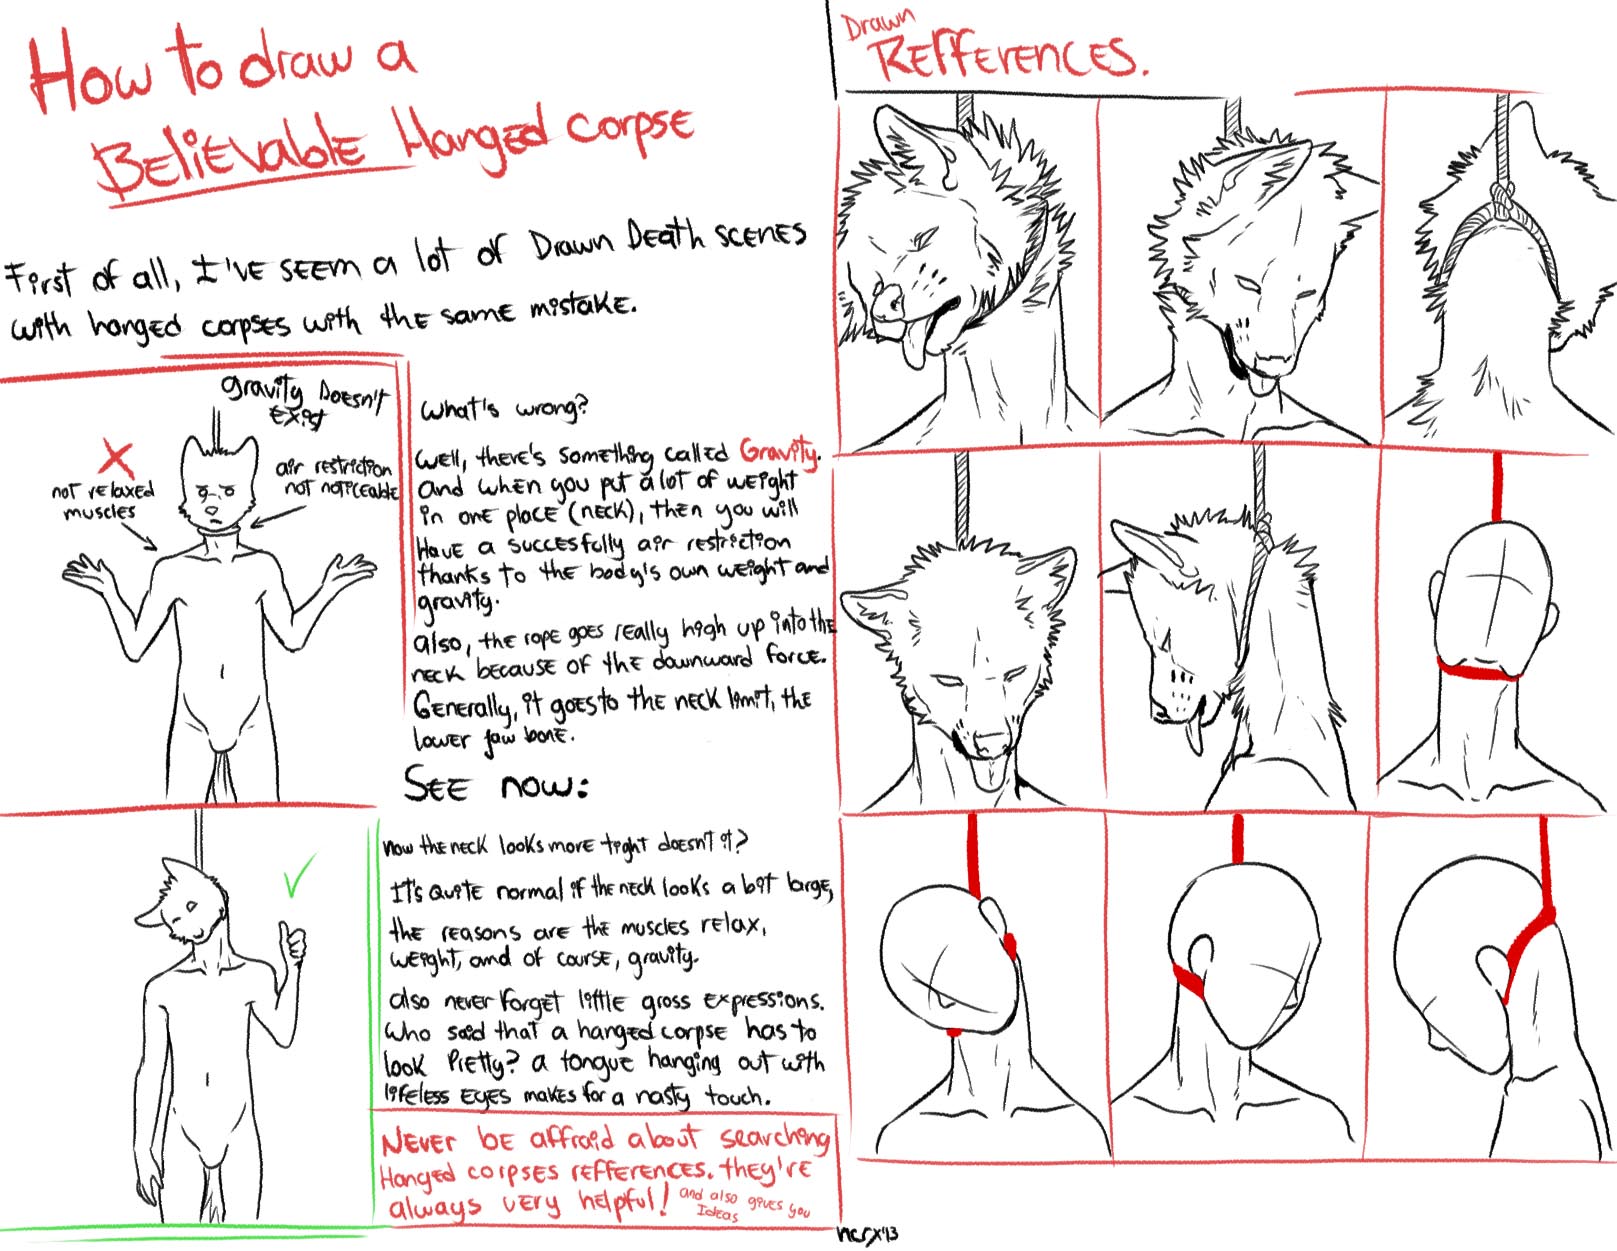 How to draw a
Believable Hanged corpse
First of all, I've seem a lot of Drawn Death scenes
with hanged corpses with the same mistake.
gravity Doesn't
exist
not relaxed
muscles
air restriction
not noticeable
What's wrong?
Well, there's something called Gravity.
and when you put a lot of weight
in one place (neck), then you will
Have a succesfully air restriction
thanks to the body's own weight and
gravity.
also, the rope goes really high up into the
neck because of the downward force.
Generally, it goes to the neck limit, the
lower jaw bone.
See now:
now the neck looks more tight doesn't it?
It's quite normal if the neck looks a bit large,
the reasons are the muscles relax,
weight, and of course, gravity.
also never forget little gross expressions.
who said that a hanged corpse has to
look Pretty? a tongue hanging out with
lifeless Eyes makes for a nasty touch.
Never be affraid about searching
Hanged corpses refferences. they're
always very helpful! and also gives you
Ideas
Drawn
Refferences.
ncrx'13